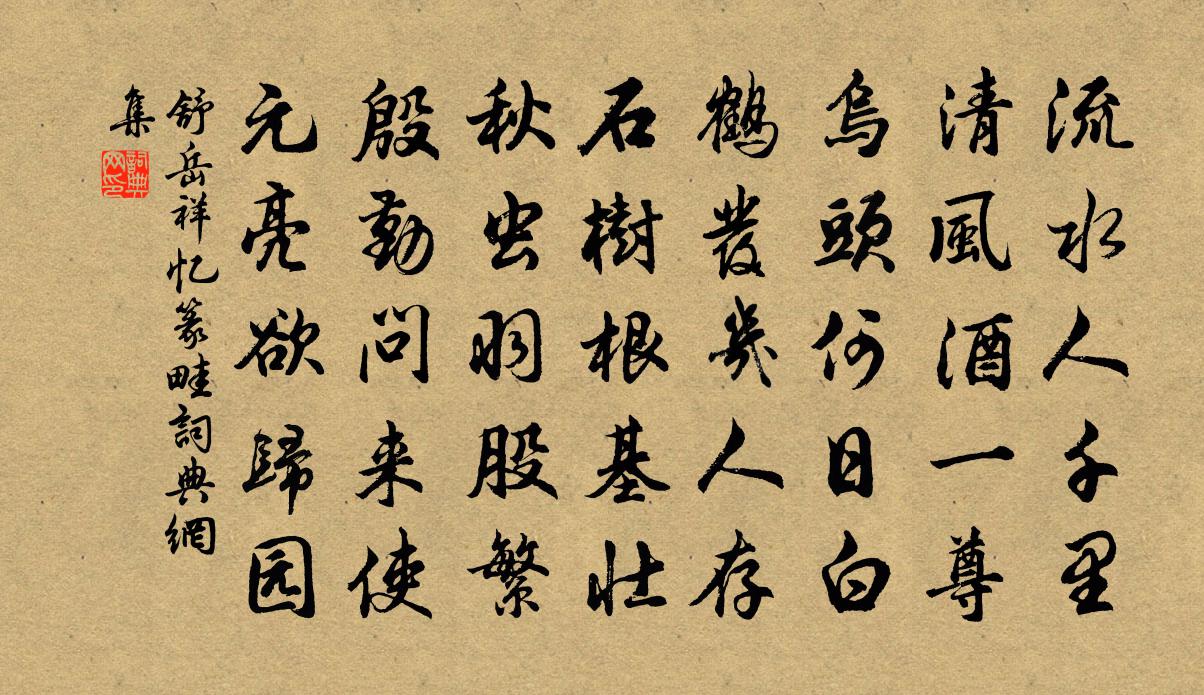 流水人千里
清風酒一尊
烏頭何日白
鶴髮幾人存
石樹根基壮
秋虫羽股繁
殷勤问来使
元亮欲歸园
舒岳祥忆篆畦詞典網
集
詞典网印